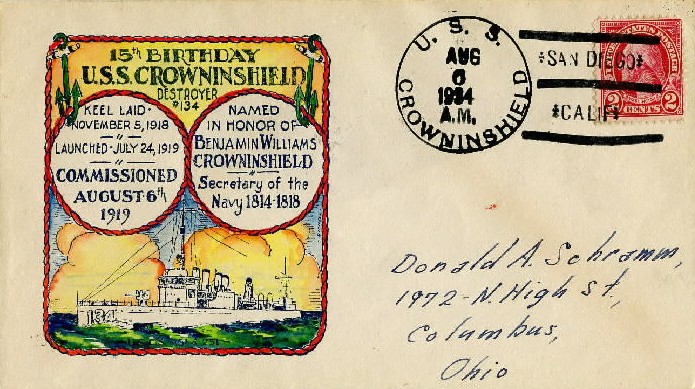 15th BIRTHDAY
U.S.S. CROWNINSHIELD
DESTROYER
#134
KEEL LAID -
NOVEMBER 5, 1918
"
LAUNCHED - JULY 24, 1919
"
COMMISSIONED
AUGUST 6th
1919
NAMED
IN HONOR OF
BENJAMIN WILLIAMS
CROWNINSHIELD
"
Secretary of the
Navy 1814-1818
134
U. S. S.
AUG
6
1934
A.M.
CROWNINSHIELD
*SAN DIEGO*
*CALIF*
UNITED STATES POSTAGE
2 CENTS 2
Donald A. Schramm,
1972-N. High St,
Columbus,
Ohio